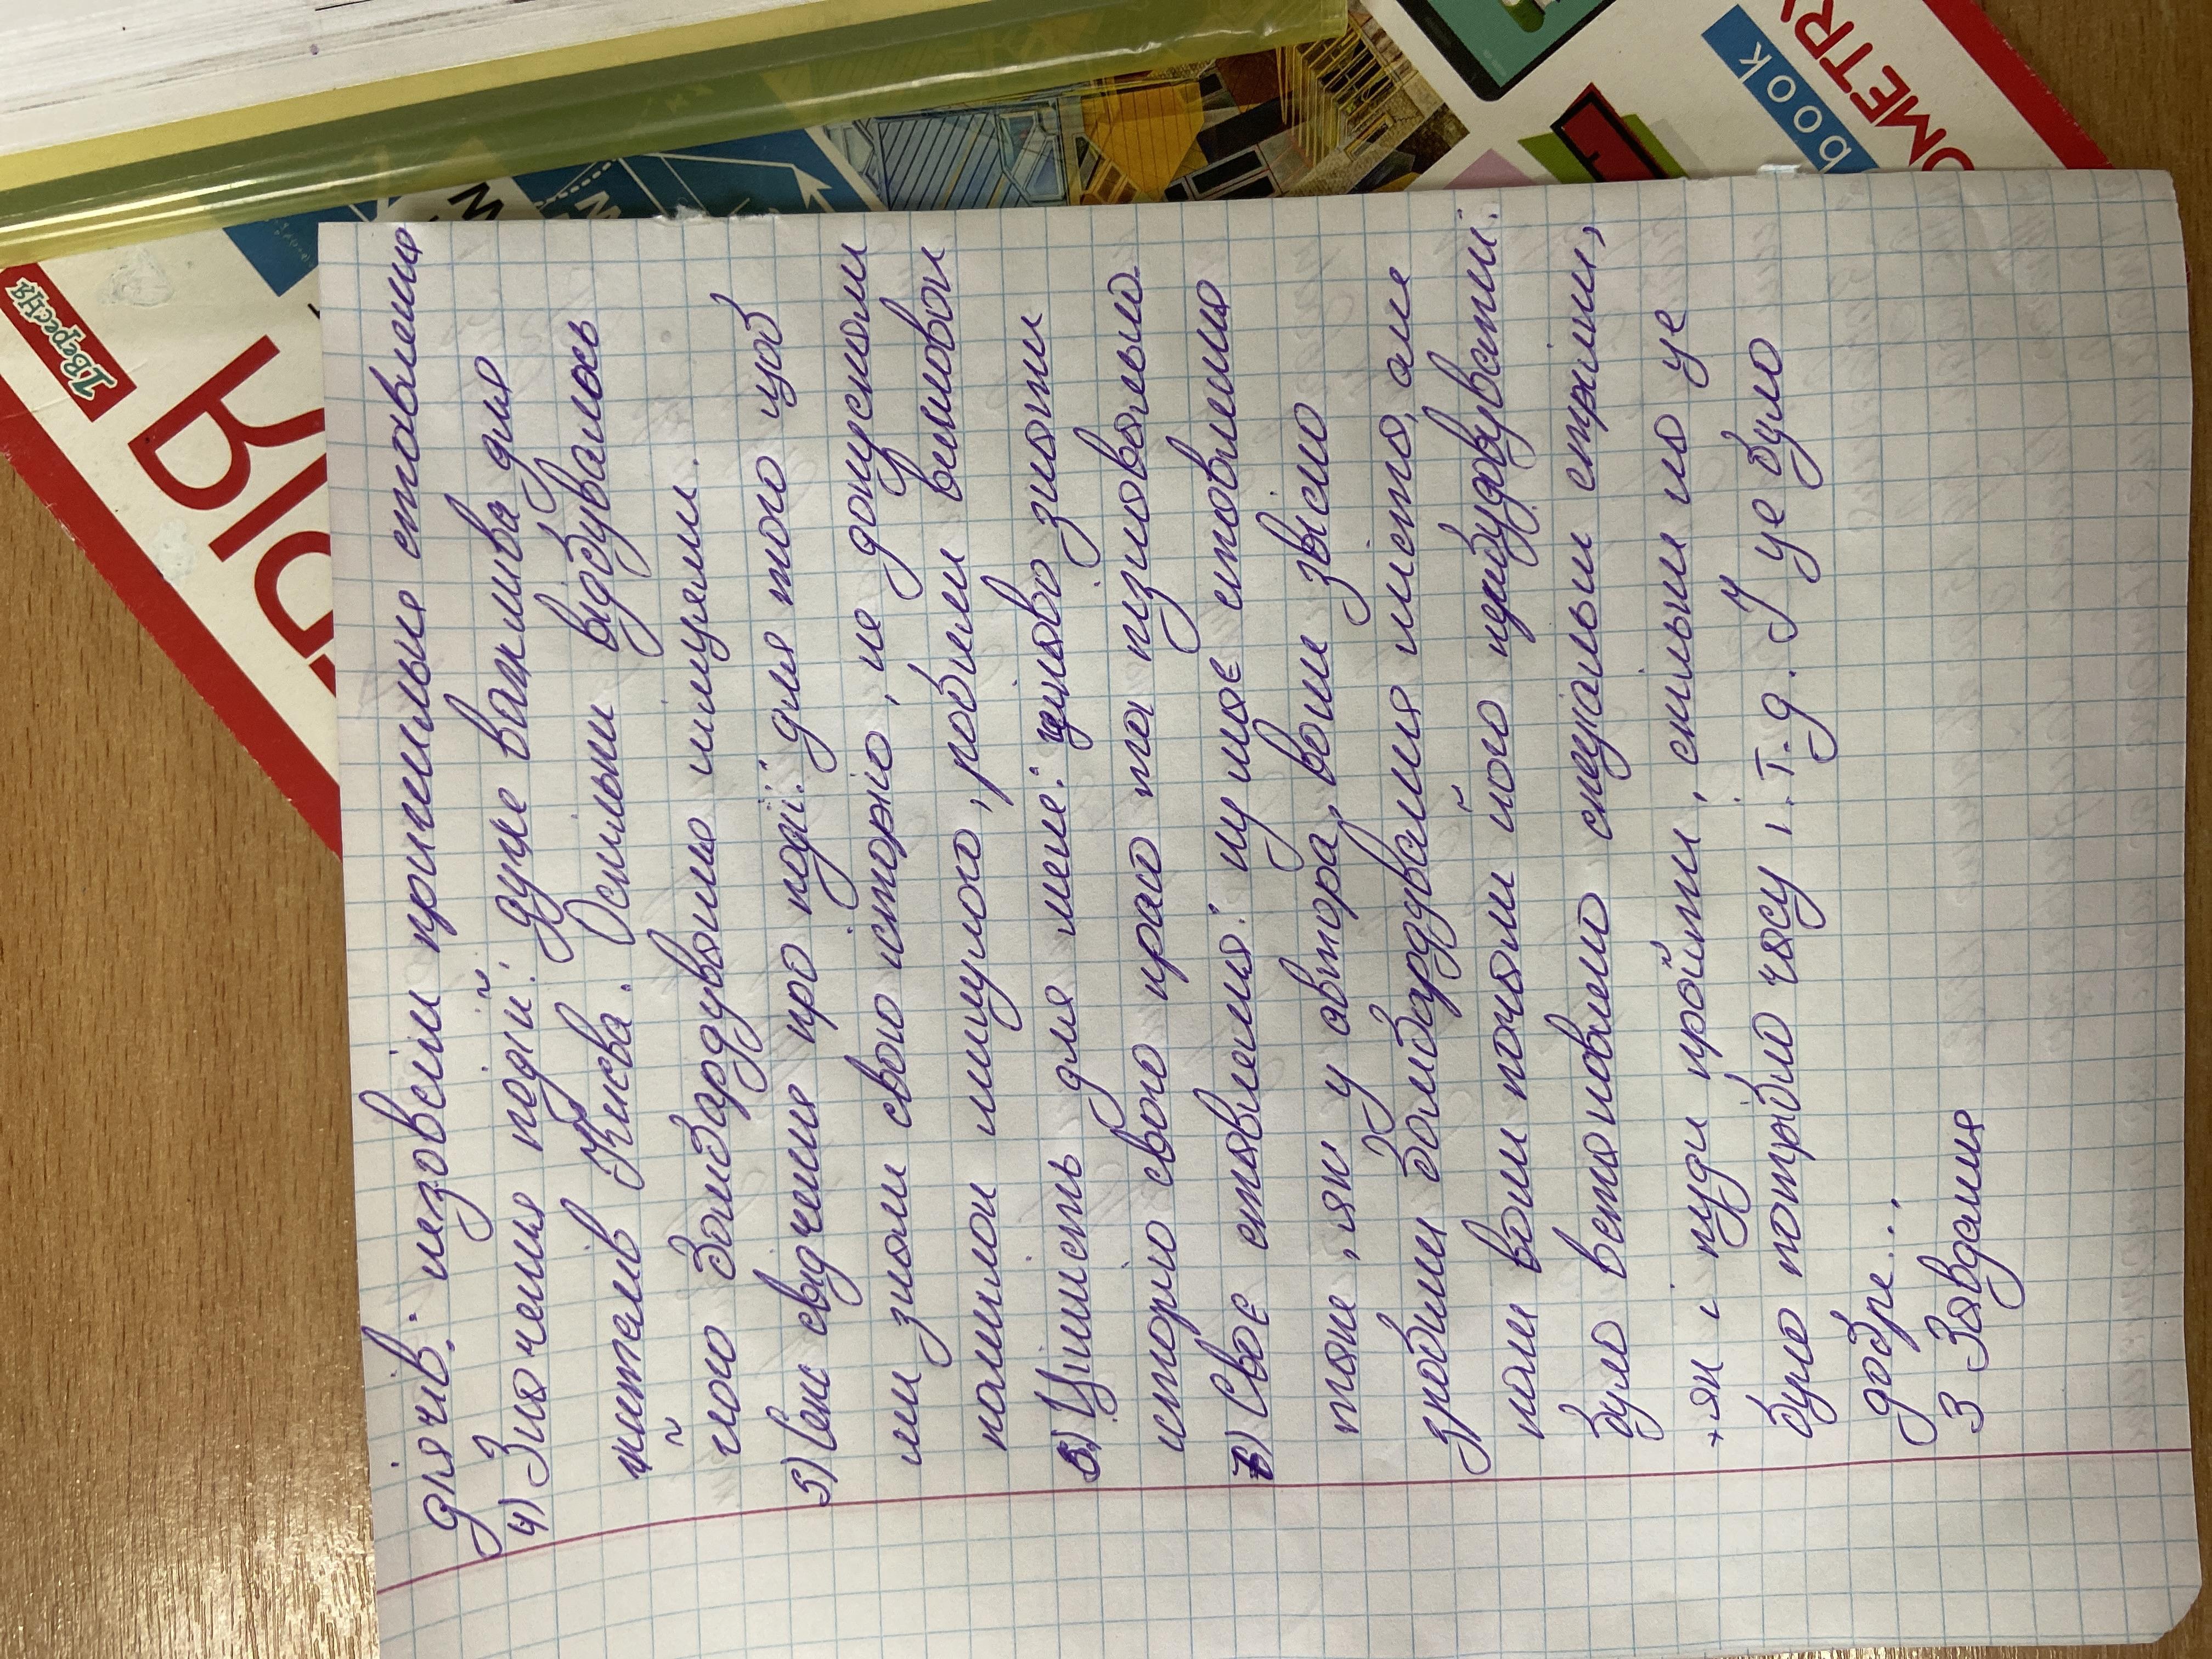 діячів: назовсім прихильне ставлення
4) Значення подій: дуже важлива для
жителів Києва. Оскільки відбувалось
його бомбардування німцями.
5) Сам свідчення про події: для того щоб
ми знали свою історію, не допускали
помилок минулого, робили висновки
6) Цінність для мене: цікаво знати
історію свого краю та пізнавально
7) Своє ставлення: ну моє ставлення
таке, як у автора, вони звісно
зробили бомбардування міста, але
коли вони почали його перебудовувати:
було встановлено спеціальні стріли,
як і куди пройти, скільки на це
було потрібно часу і т.д. І це було
добре...
3 Завдання
1 Вересня
book
OMETRY